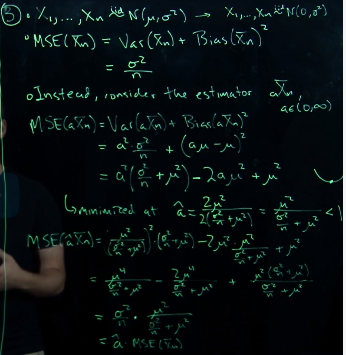 ③ • X₁,...,Xₙ iid N(μ,σ²) → X₁,...,Xₙ iid N(0,σ²)
• MSE(X̄ₙ) = Var(X̄ₙ) + Bias(X̄ₙ)²
= σ²/n
o Instead, consider the estimator aX̄ₙ,
a∈(0,∞)
MSE(aX̄ₙ) = Var(aX̄ₙ) + Bias(aX̄ₙ)²
= a²·σ²/n + (aμ-μ)²
= a²(σ²/n + μ²) - 2aμ² + μ²
↳ minimized at â = 2μ²/2(σ²/n + μ²) = μ²/(σ²/n + μ²) < 1
MSE(âX̄ₙ) = (μ²/(σ²/n + μ²))²·(σ²/n + μ²) - 2μ²·μ²/(σ²/n + μ²) + μ²
= μ⁴/(σ²/n + μ²) - 2μ⁴/(σ²/n + μ²) + μ²(σ²/n + μ²)/(σ²/n + μ²)
= σ²/n · μ²/(σ²/n + μ²)
= â · MSE(X̄ₙ)